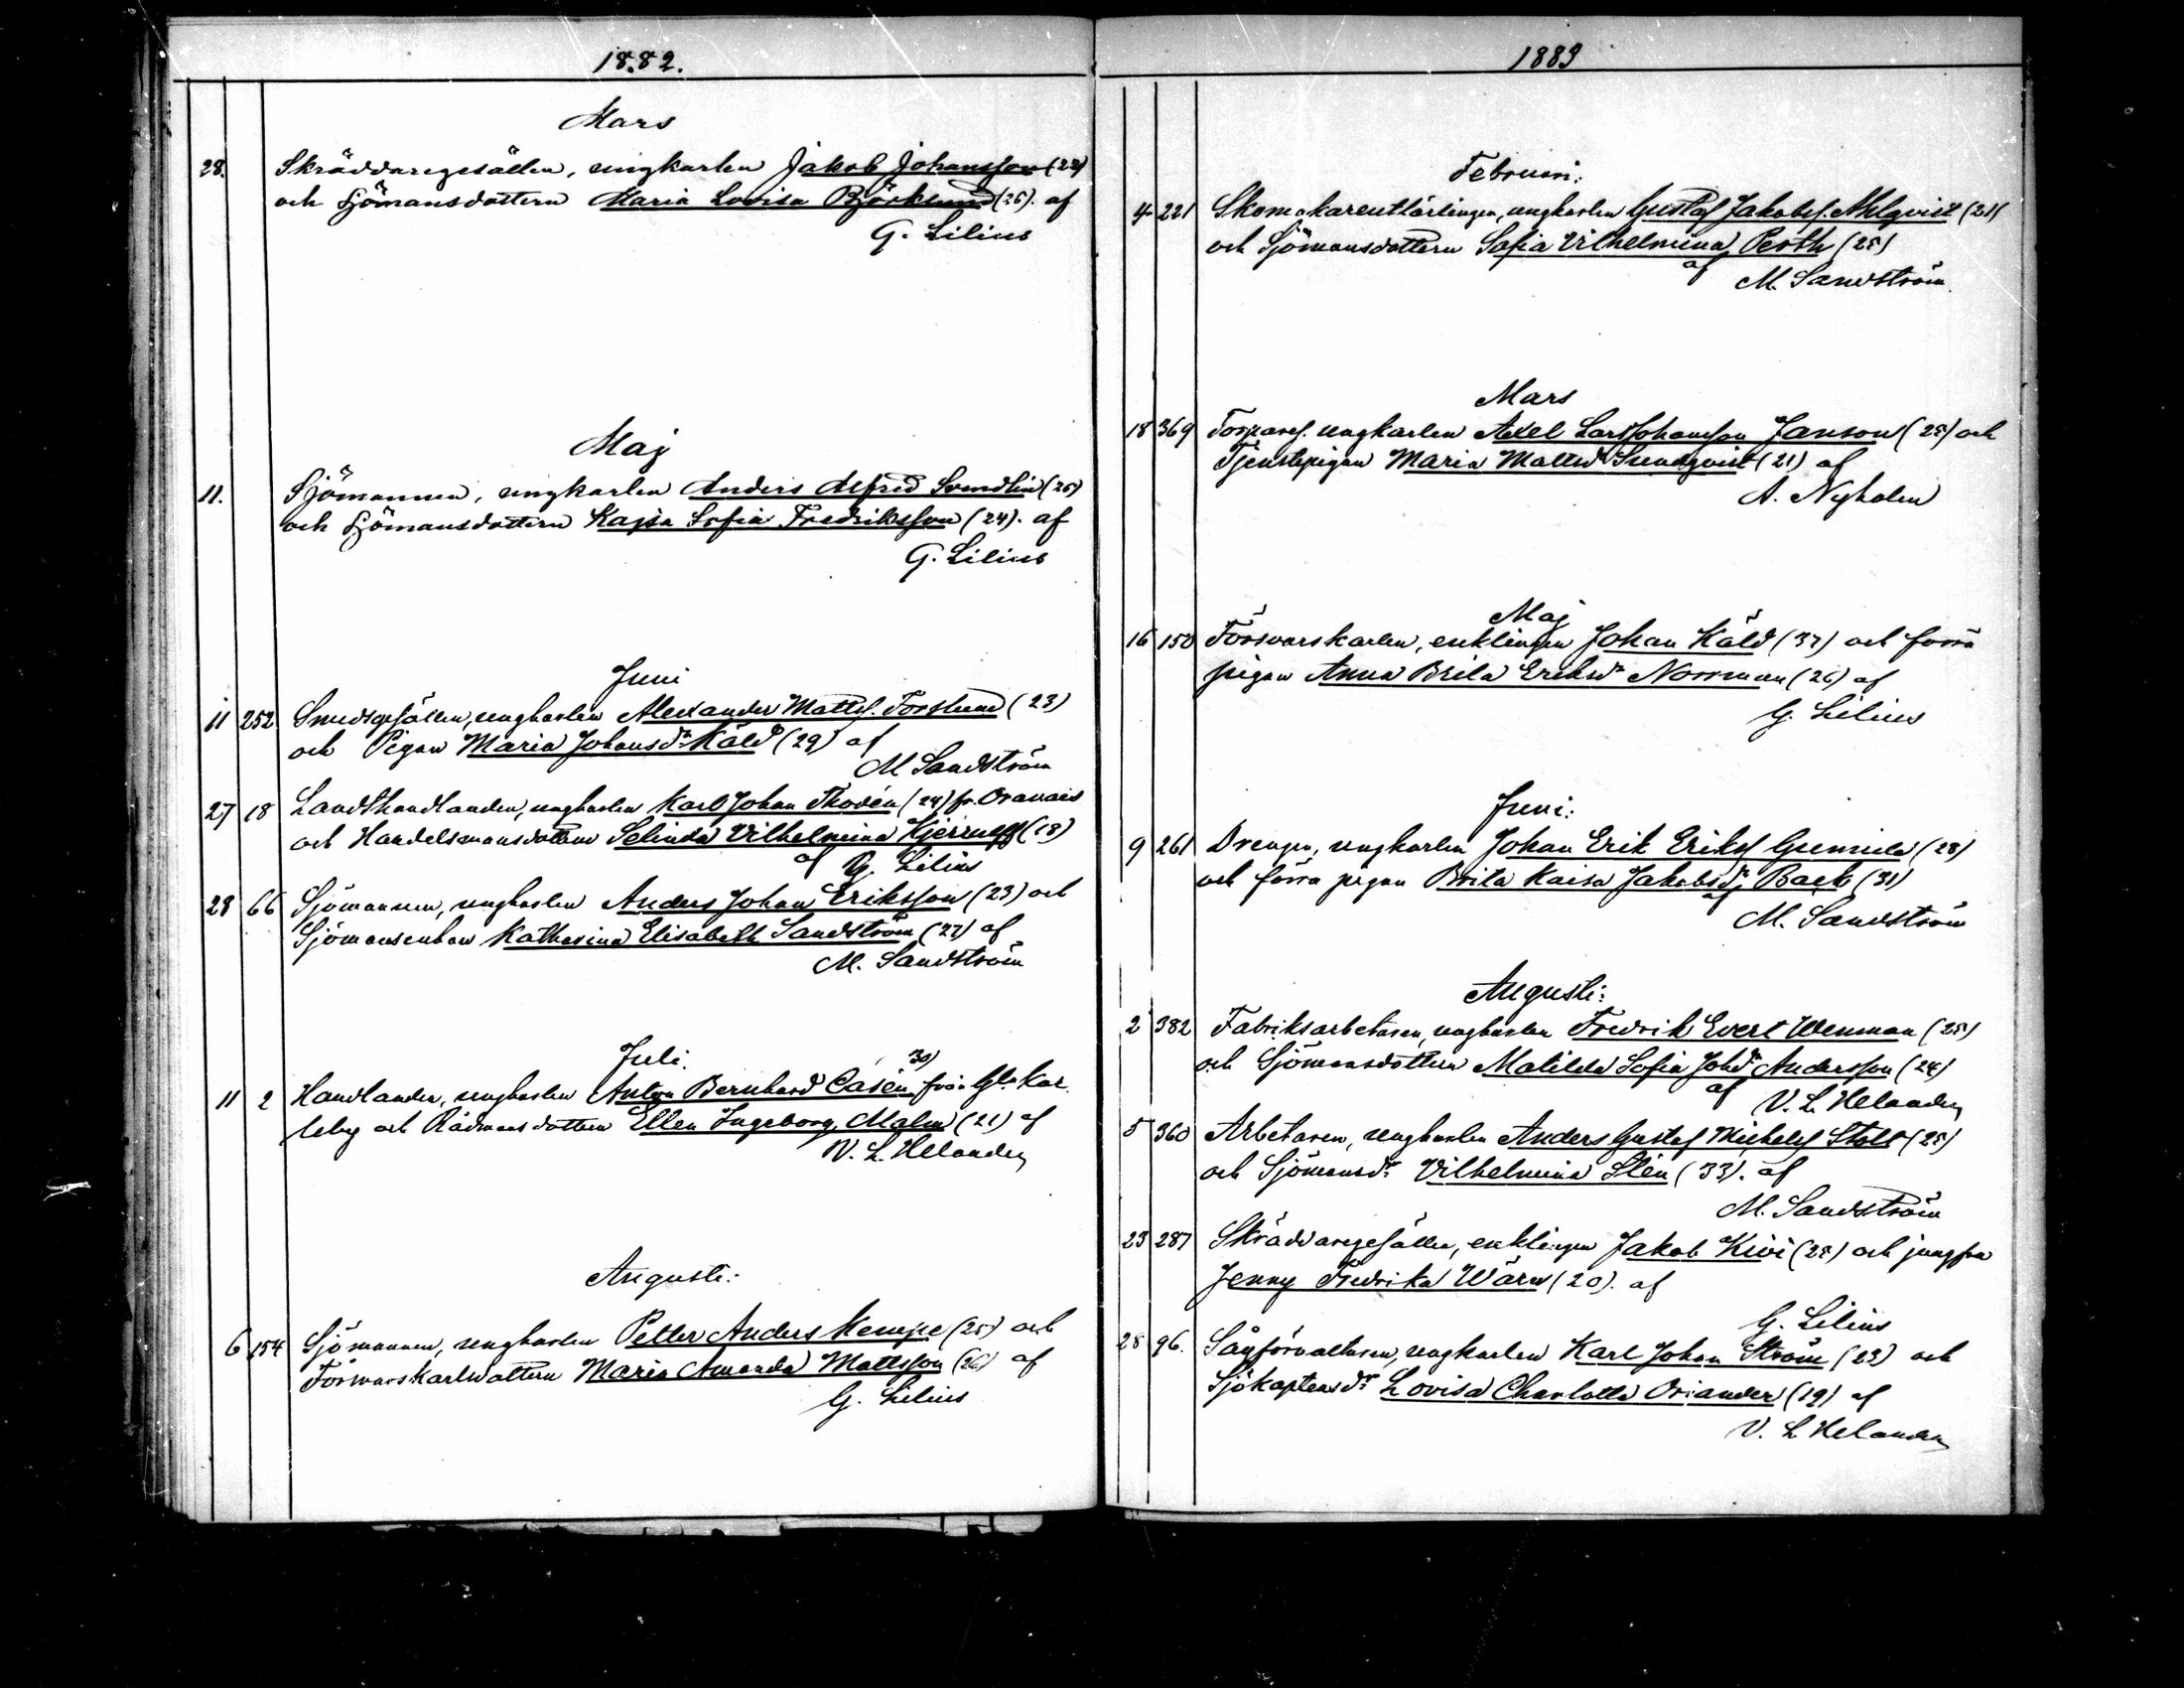 1882.
Mars
28. Skräddaregesällen, ungkarlen Jakob Johansson (23)
och Sjömansdottern Maria Lovisa Björklund (26). af
G. Lilius
Maj
11. Sjömannen, ungkarlen Anders Alfred Svendlin (25)
och Sjömansdottern Kajsa Sofia Fredriksson (24). af
G. Lilius
Juni
11 252 Smedsgesällen, ungkarlen Alexander Mattss. Forslund (23)
och Pigan Maria Johansdr Käld (29) af
M Sandström
27 18 Landthandlanden, ungkarlen Karl Johan Thodén (24) fr. Oravais
och Handelsmansdottern Selinda Vilhelmina Kjerrulff (18)
af G. Lilius
28 66 Sjömannen, ungkarlen Anders Johan Eriksson (23) och
Sjömansenkan Katharina Elisabeth Sandström (27) af
M. Sandström
Juli.
11 2 Handlanden, ungkarlen Anton Bernhard Casén 30) från Gla Kar
leby och Rådmansdottern Ellen Ingeborg Malm (21) af
V. L. Helander
Augusti:
6 154 Sjömannen, ungkarlen Petter Anders Kempe (25) och
Försvarskarlsdottern Maria Amanda Mattsson (26) af
G. Lilius
1883
Februari:
4 221 Skomakarenslärlingen, ungkarlen Gustaf Jakobss. Ahlqvist (21)
och Sjömansdottern Sofia Vilhelmina Perth (25)
af M. Sandström.
Mars
18 369 Torpares. ungkarlen Axel Lars Johansson Janson (25) och
Tjenstepigan Maria Mattsdr Sundqvist (21) af
A. Nyholm
Maj
16 150 Försvarskarlen, enklingen Johan Käld (37) och forra
pigan Anna Brita Eriksdr Norrman (26) af
G. Lilius
Juni:
9 261 Drengen, ungkarlen Johan Erik Erikss Gunnila (28)
och förra pigan Brita Kaisa Jakobsdr Back (31)
af M. Sandström
Augusti:
2 382 Fabriksarbetaren, ungkarlen Fredrik Evert Wenman (25)
och Sjömansdottern Matilda Sofia Johdr Andersson (24)
af V. L. Helander
5 360 Arbetaren, ungkarlen Anders Gustaf Michelss Stolt (25)
och Sjömansdr Vilhelmina Stén (33). af
M. Sandström
23 287 Skräddaregesällen, enklingen Jakob Kivi (25) och jungfru
Jenny Fredrika Wärn (20). af
G. Lilius
28 96. Sågförvaltaren, ungkarlen Karl Johan Ström (23) och
Sjökaptensdr Lovisa Charlotta Oriander (19) af
V. L Helander